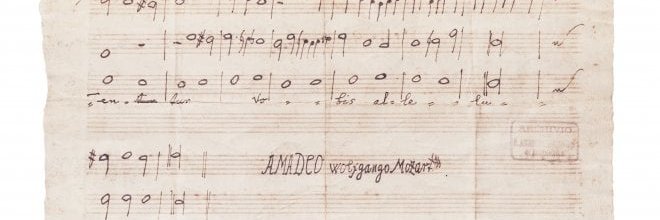 _en_tur vo . . bis al . le . lu . .
ARCHIVIO
AMADEO wolfgango Mozart